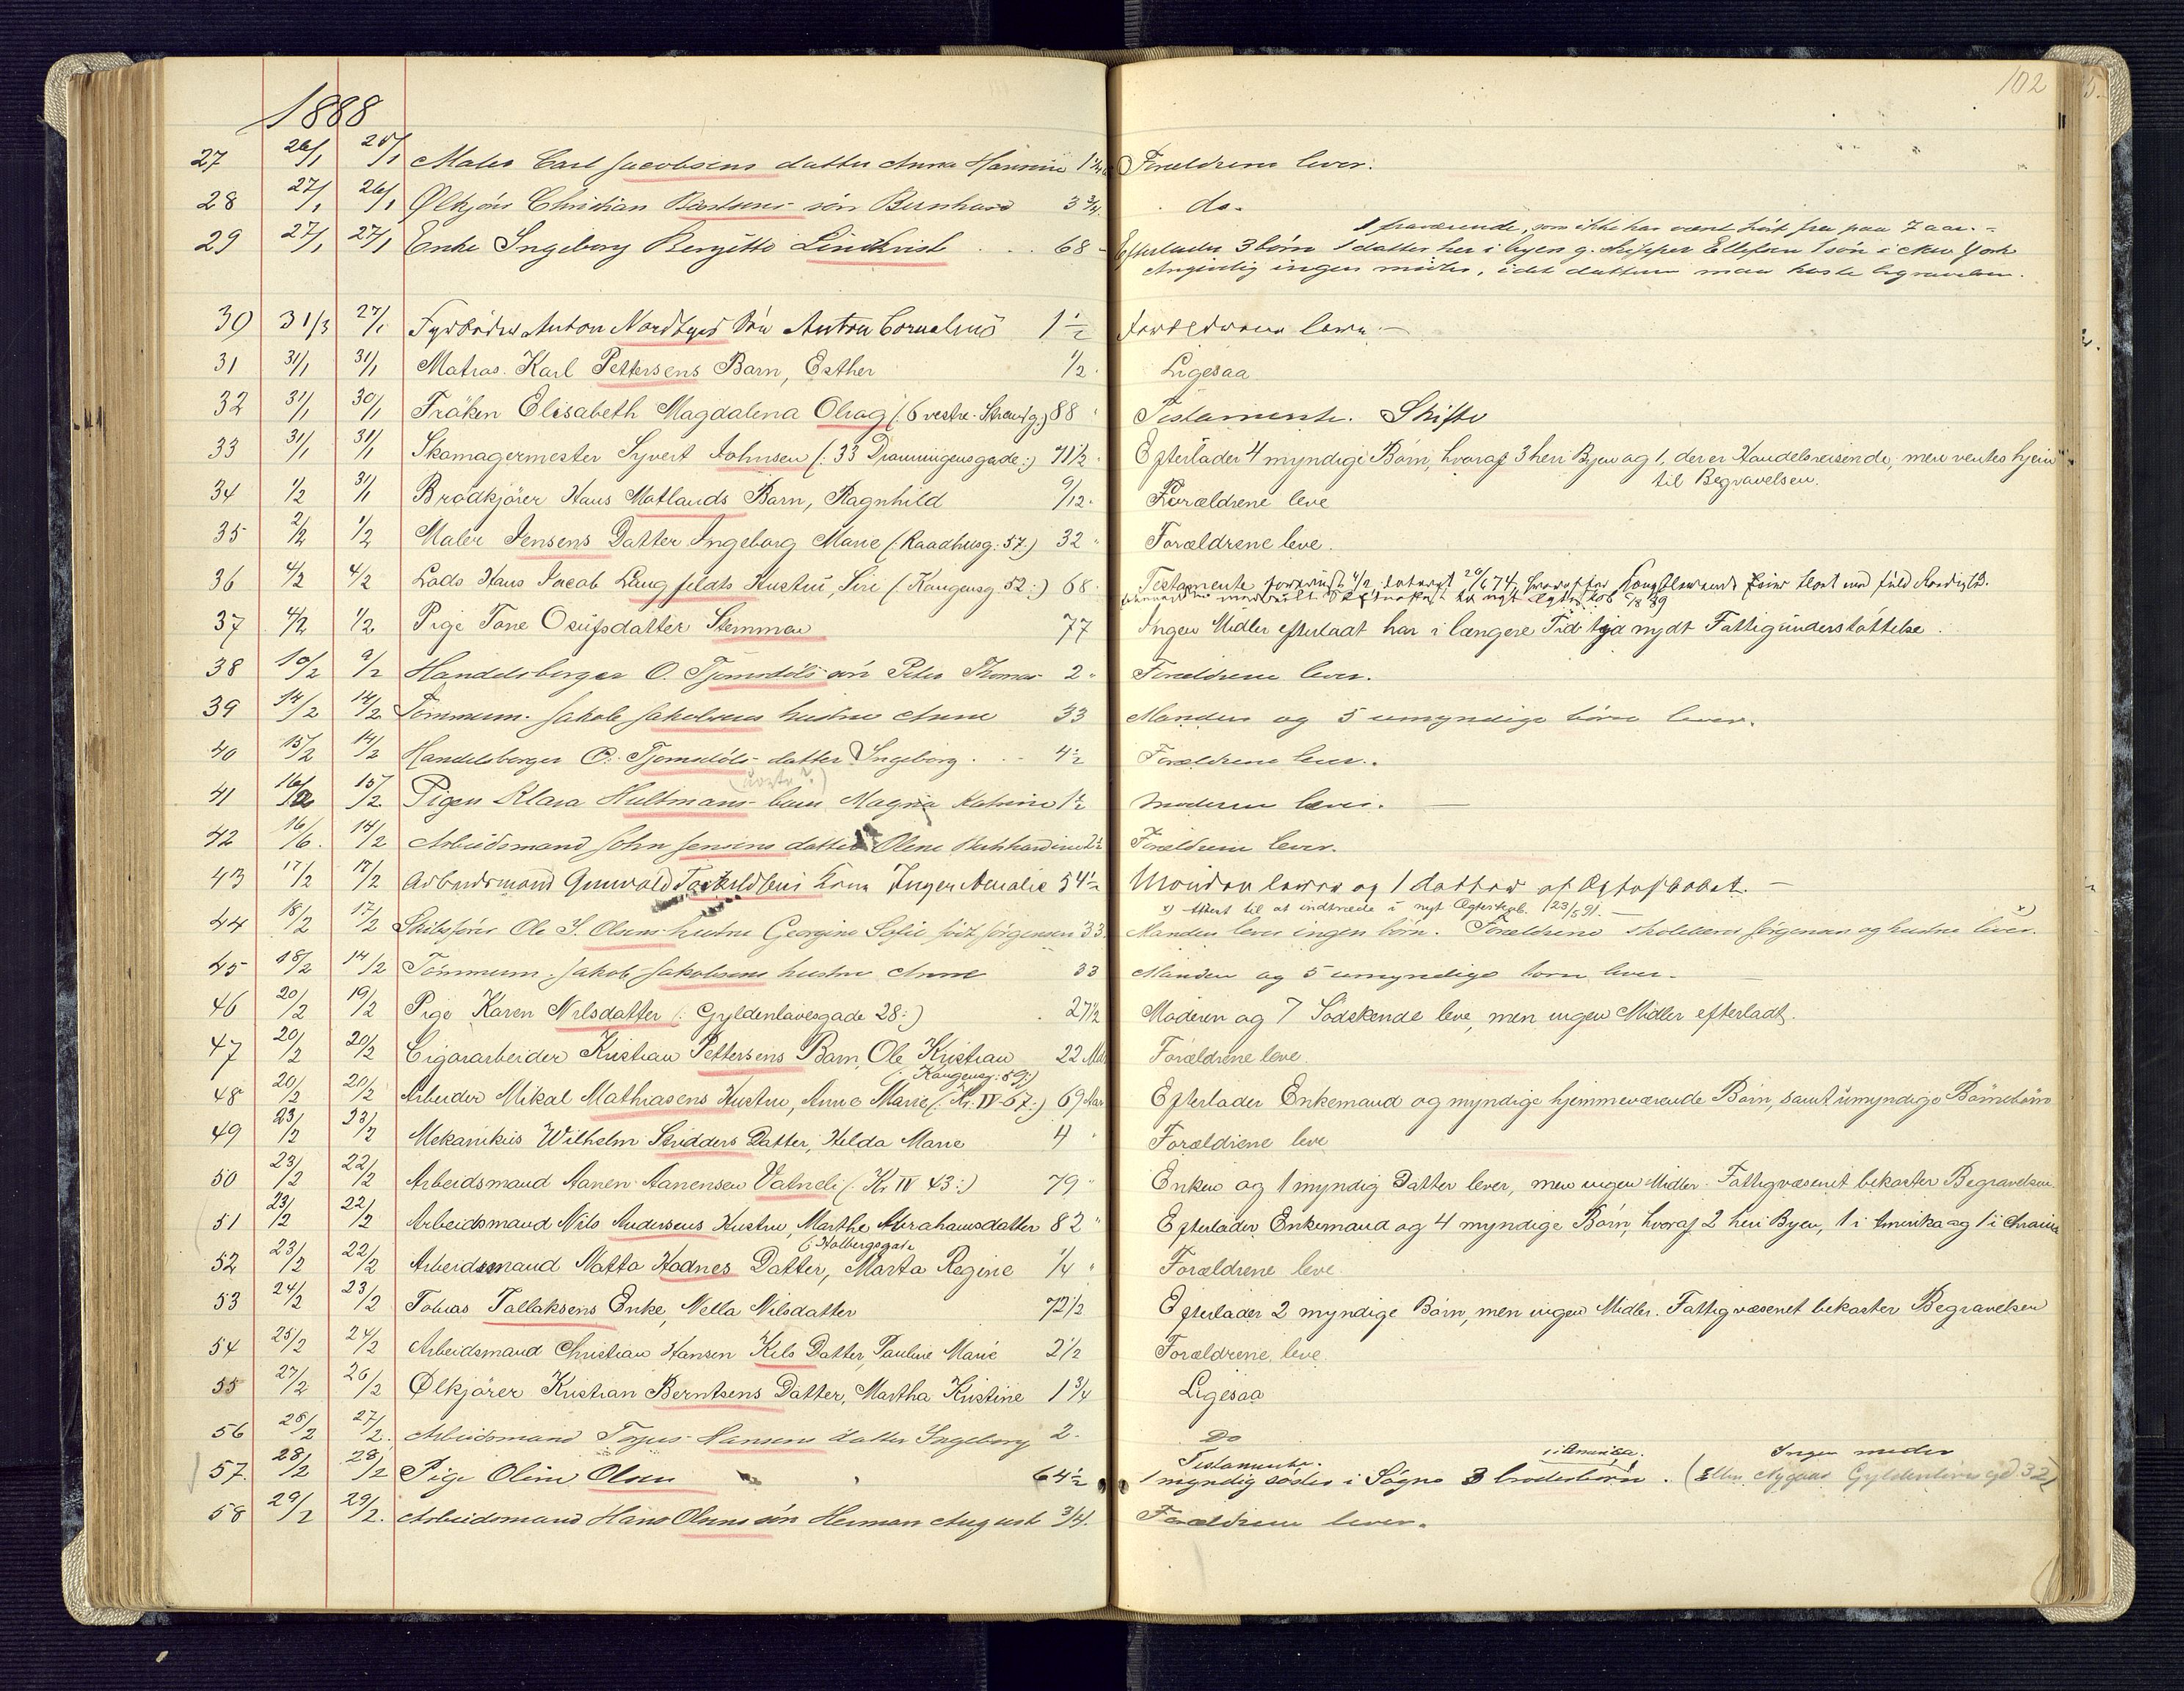 102
1888
27 26/1 25/1 Carl Jacobsens datter Anna 1 Forældrene lever.
28 27/1 26/1 Ølkjörer Christian sön Bernhard 3 3/4 do.
1 fraværende, som ikke har været hört fra paa 7 aar.
29 27/1 27/1 Enke Ingeborg Bergitte Lindkvist 68 Efterlader 3 börn 1 datter her i byen g. skipper Ellefsen 1 sön i New York
Angivelig ingen midler, idet datteren maa koste begravelsen.
30 31/3 27/1 Fyrböder Anton Nordbyes Sön Anton Cornelius 1 1/2 Forældrene leve.
31 31/1 31/1 Matros. Karl Pettersens Barn, Esther 1/2 Ligesaa
32 31/1 30/1 Fröken Elisabeth Magdalena Olrog (: 6 vestre Strandg:) 88 Testamente. Skifte
33 31/1 31/1 Skomagermester Syvert Johnsen (: 33 Dronningensgade:) 71 1/2 Efterlader 4 myndige Börn, hvoraf 3 her i Byen og 1, der er Handelsreisende, men ventes hjem
til Begravelsen.
34 1/2 31/1 Brödkjörer Hans Matlands Barn, Ragnhild 9/12 Forældrene leve
35 2/2 1/2 Maler Jensens Datter Ingeborg Marie (: Raadhusg: 57:) 32 Forældrene leve.
36 4/2 4/2 Lods Hans Jacob Langfeldts Hustru, Siri (: Kongensg 52:) 68 Testamente 4/2 20/6 74,
37 4/2 1/2 Pige Tone Osufsdatter Stemmen 77 Ingen Midler efterladt har i længere Tid nydt Fattigunderstöttelse.
38 10/2 9/2 Handelsborger O. Tjomslöls sön Peter Thomas 2 Forældrene lever.
39 14/2 14/2 Tömmerm. Jakob Jakobsens hustru Anne 33 Manden og 5 umyndige börn lever.
40 15/2 14/2 Handelsborger O. Tjomslöls datter Ingeborg 4 1/2 Forældrene lever.
41 16/2 15/2 Pigen Klara Hultmans barn Magna Katrine 1 1/2 Moderen lever.
42 16/6 14/2 Arbeidsmand John Jensens datter Olene 2 1/2 Forældrene lever.
43 17/2 17/2 Arbeidsmand Gunvald Torkildsens Kone Inger Amalie 54 1/2 Manden lever og 1 datter af Egteskabet.
x) til at indtræde i nyt Ægteskab. 23/5 91.
44 18/2 17/2 Skibsförer Ole S. Olsens hustru Georgine Sofie född Jörgensen 33 Manden lever ingen börn. Forældrene Jörgensen og hustru lever. x)
45 18/2 14/2 Tömmerm. Jakob Jakobsens hustru Anne 33 Manden og 5 umyndige born lever.
46 20/2 19/2 Pige Karen Nilsdatter (: Gyldenlövesgade 28:) 27 1/2 Moderen og 7 Södskende leve, men ingen Midler efterladt.
47 20/2 20/2 Cigararbeider Kristian Pettersens Barn, Ole Kristian 22 Forældrene leve.
(: Kongensg: 59:)
48 20/2 20/2 Arbeider Mikal Mathiasens Hustru, Anne Marie (: Kr. IV-67:) 69 Aar Efterlader Enkemand og myndige hjemmeværende Börn, samt umyndige Börnebörn
49 23/2 23/2 Mekanikus Wilhelm Skidders Datter, Hilda Marie 4 Forældrene leve
50 23/2 22/2 Arbeidsmand Aanen Aanensen Vatneli (: Kr IV 43:) 79 Enken og 1 myndig Datter lever, men ingen Midler. Fattigvæsenet bekoster Begravelsen
51 23/2 22/2 Arbeidsmand Nils Andersens Hustru, Marthe Abrahamsdatter 82 Efterlader Enkemand og 4 myndige Börn, hvoraf 2 her i Byen, 1 i Amerika og 1 i Chrania
(: Holbergsgade
52 23/2 22/2 Arbeidsmand Notto Hodnes Datter, Marta Regine 1/4 Forældrene leve
53 24/2 23/2 Tobias Tallaksens Enke, Nella Nilsdatter 72 1/2 Efterlader 2 myndige Börn, men ingen Midler. Fattigvæsenet bekoster Begravelsen
54 25/2 24/2 Arbeidsmand Christian Hansen Kils Datter, Pauline Marie 2 1/2 Forældrene leve.
55 27/2 26/2 Ølkjörer Kristian Berntsens Datter, Martha Kristine 1 3/4 Ligesaa
56 28/2 27/2 Arbeidsmand Hansens datter Ingeborg 2. Do
Testamente. i Amerika. Ingen midler
57. 28/2 28/2 Pige Oline Olsen 64 1/2 1 myndig söster i Sögne 3 broderbörn. (Ellen Nygaard Gyldenlöves gd 32)
58 29/2 29/2. Arbeidsmand Hans Olsens sön Herman August 3/4. Forældrene lever.